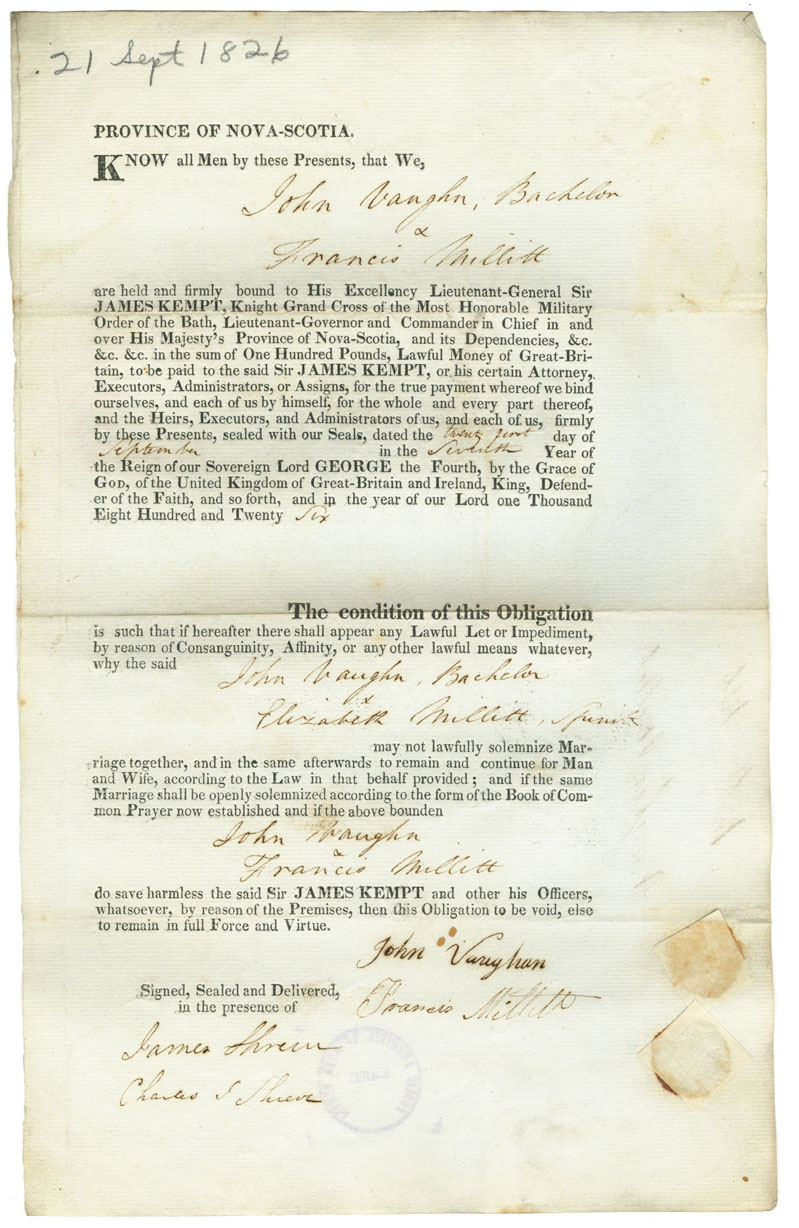 .21 Sept 1826
PROVINCE OF NOVA-SCOTIA.
KNOW all Men by these Presents, that We,
John Vaughn, Bachelor
&
Francis Millitt
are held and firmly bound to His Excellency Lieutenant-General Sir
JAMES KEMPT, Knight Grand Cross of the Most Honorable Military
Order of the Bath, Lieutenant-Governor and Commander in Chief in and
over His Majesty's Province of Nova-Scotia, and its Dependencies, &c.
&c. &c. in the sum of One Hundred Pounds, Lawful Money of Great-Bri-
tain, to be paid to the said Sir JAMES KEMPT, or his certain Attorney,
Executors, Administrators, or Assigns, for the true payment whereof we bind
ourselves, and each of us by himself, for the whole and every part thereof,
and the Heirs, Executors, and Administrators of us, and each of us, firmly
by these Presents, sealed with our Seals, dated the twenty first day of
September in the Seventh Year of
the Reign of our Sovereign Lord GEORGE the Fourth, by the Grace of
GOD, of the United Kingdom of Great-Britain and Ireland, King, Defend-
er of the Faith, and so forth, and in the year of our Lord one Thousand
Eight Hundred and Twenty Six
The condition of this Obligation
is such that if hereafter there shall appear any Lawful Let or Impediment,
by reason of Consanguinity, Affinity, or any other lawful means whatever,
why the said
John Vaughn, Bachelor
&
Elizabeth Millitt,
may not lawfully solemnize Mar-
riage together, and in the same afterwards to remain and continue for Man
and Wife, according to the Law in that behalf provided; and if the same
Marriage shall be openly solemnized according to the form of the Book of Com-
mon Prayer now established and if the above bounden
John Vaughn
&
Francis Millitt
do save harmless the said Sir JAMES KEMPT and other his Officers,
whatsoever, by reason of the Premises, then this Obligation to be void, else
to remain in full Force and Virtue.
John Vaughan
Signed, Sealed and Delivered,
in the presence of
Francis Millett
James Shreve
Charles J Shreve